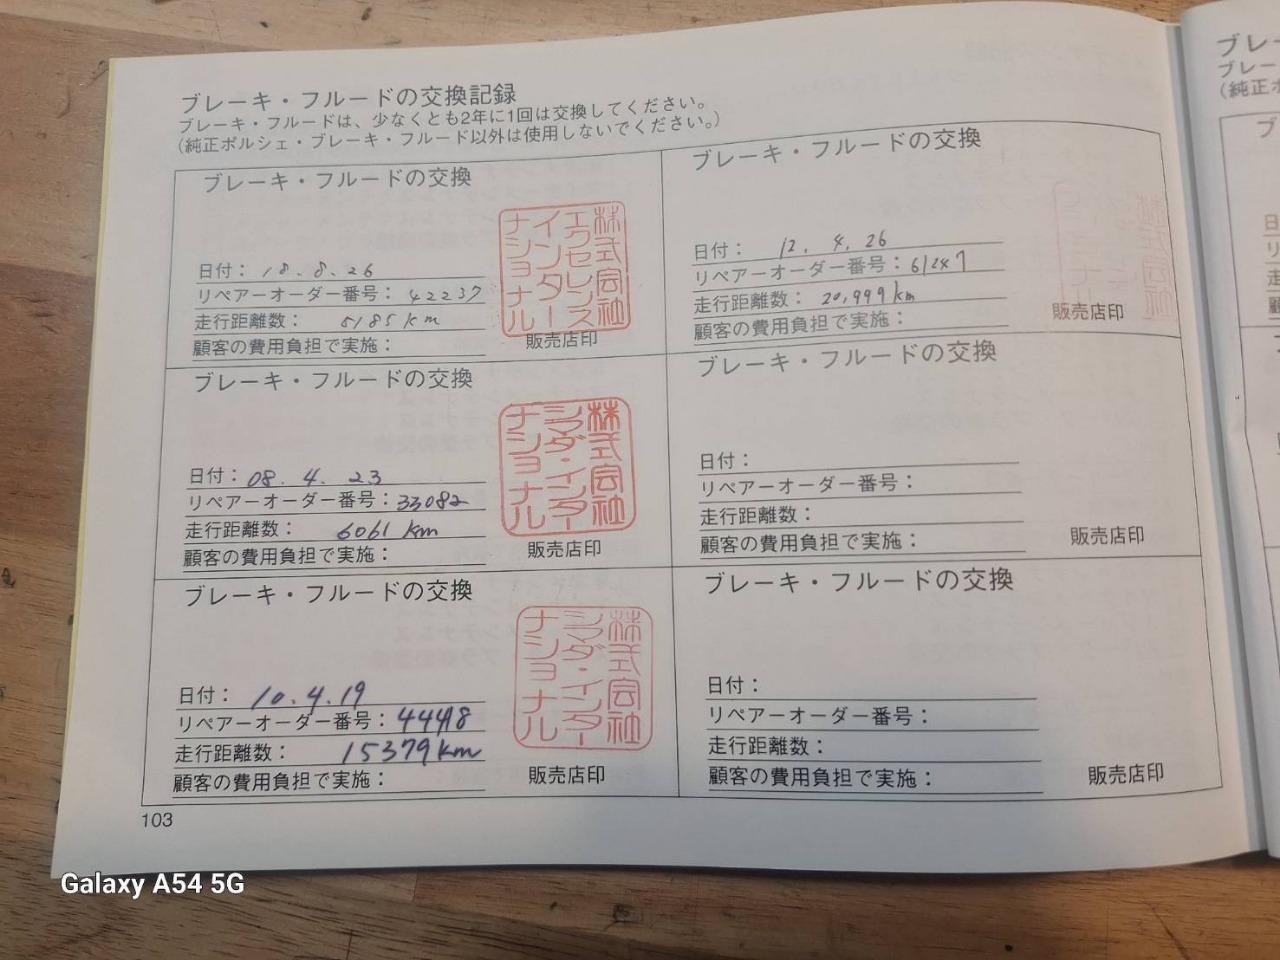 ブレーキ・フルードの交換記録
ブレーキ・フルードは、少なくとも2年に1回は交換してください。
(純正ポルシェ・ブレーキ・フルード以外は使用しないでください。)
ブレーキ・フルードの交換
株式会社
エクセレンス
インター
ナショナル
日付: 18. 8. 26
リペアーオーダー番号: 42237
走行距離数: 5185km
顧客の費用負担で実施:
販売店印
ブレーキ・フルードの交換
株式会社
シマダ・インター
ナショナル
日付: 08. 4. 23
リペアーオーダー番号: 33082
走行距離数: 6061 km
顧客の費用負担で実施:
販売店印
ブレーキ・フルードの交換
株式会社
シマダ・インター
ナショナル
日付: 10.4.19
リペアーオーダー番号: 44418
走行距離数: 15379km
顧客の費用負担で実施:
販売店印
ブレーキ・フルードの交換
日付: 12. 4. 26
リペアーオーダー番号: 61247
走行距離数: 20,999km
顧客の費用負担で実施:
販売店印
ブレーキ・フルードの交換
日付:
リペアーオーダー番号:
走行距離数:
顧客の費用負担で実施:
販売店印
ブレーキ・フルードの交換
日付:
リペアーオーダー番号:
走行距離数:
顧客の費用負担で実施:
販売店印
103
Galaxy A54 5G